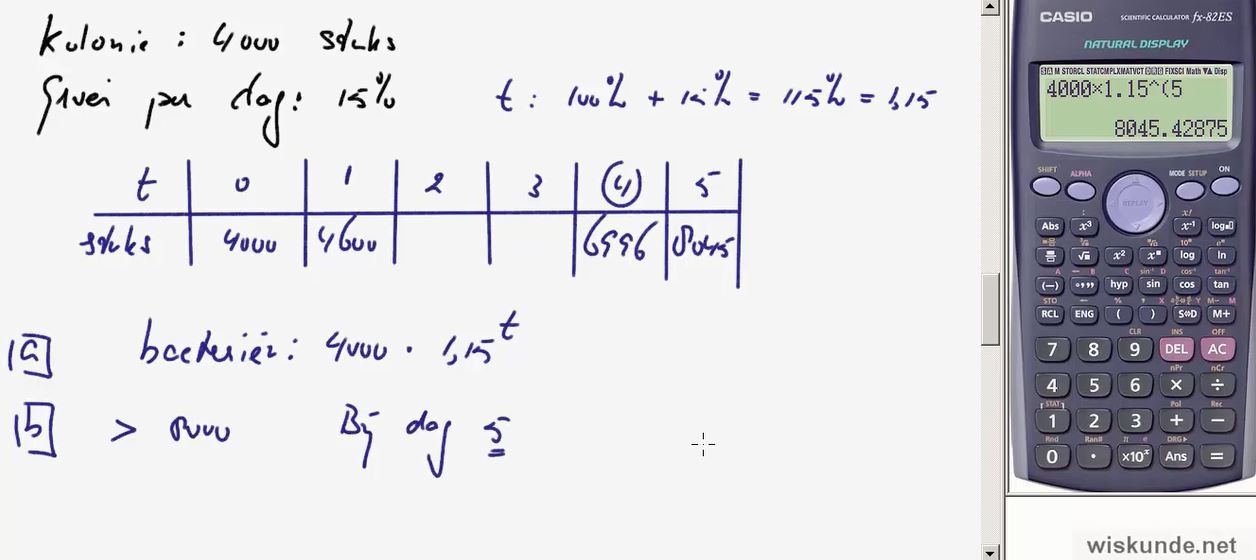 Kolonie : 4000 stuks
Groei per dag: 15%
t : 100% + 15% = 115% = 1,15
t 0 1 2 3 4 5
stuks 4000 4600 6996 8045
1a bacteriën: 4000 · 1,15^t
1b > 8000 Bij dag 5
CASIO SCIENTIFIC CALCULATOR fx-82ES
NATURAL DISPLAY
4000×1.15^(5
8045.42875
SHIFT ALPHA REPLAY MODE SETUP ON
Abs x³ x⁻¹ log
x² log ln
(−) hyp sin cos tan
RCL ENG ( ) S⇔D M+
7 8 9 DEL AC
4 5 6 × ÷
1 2 3 + −
0 · ×10ˣ Ans =
wiskunde.net